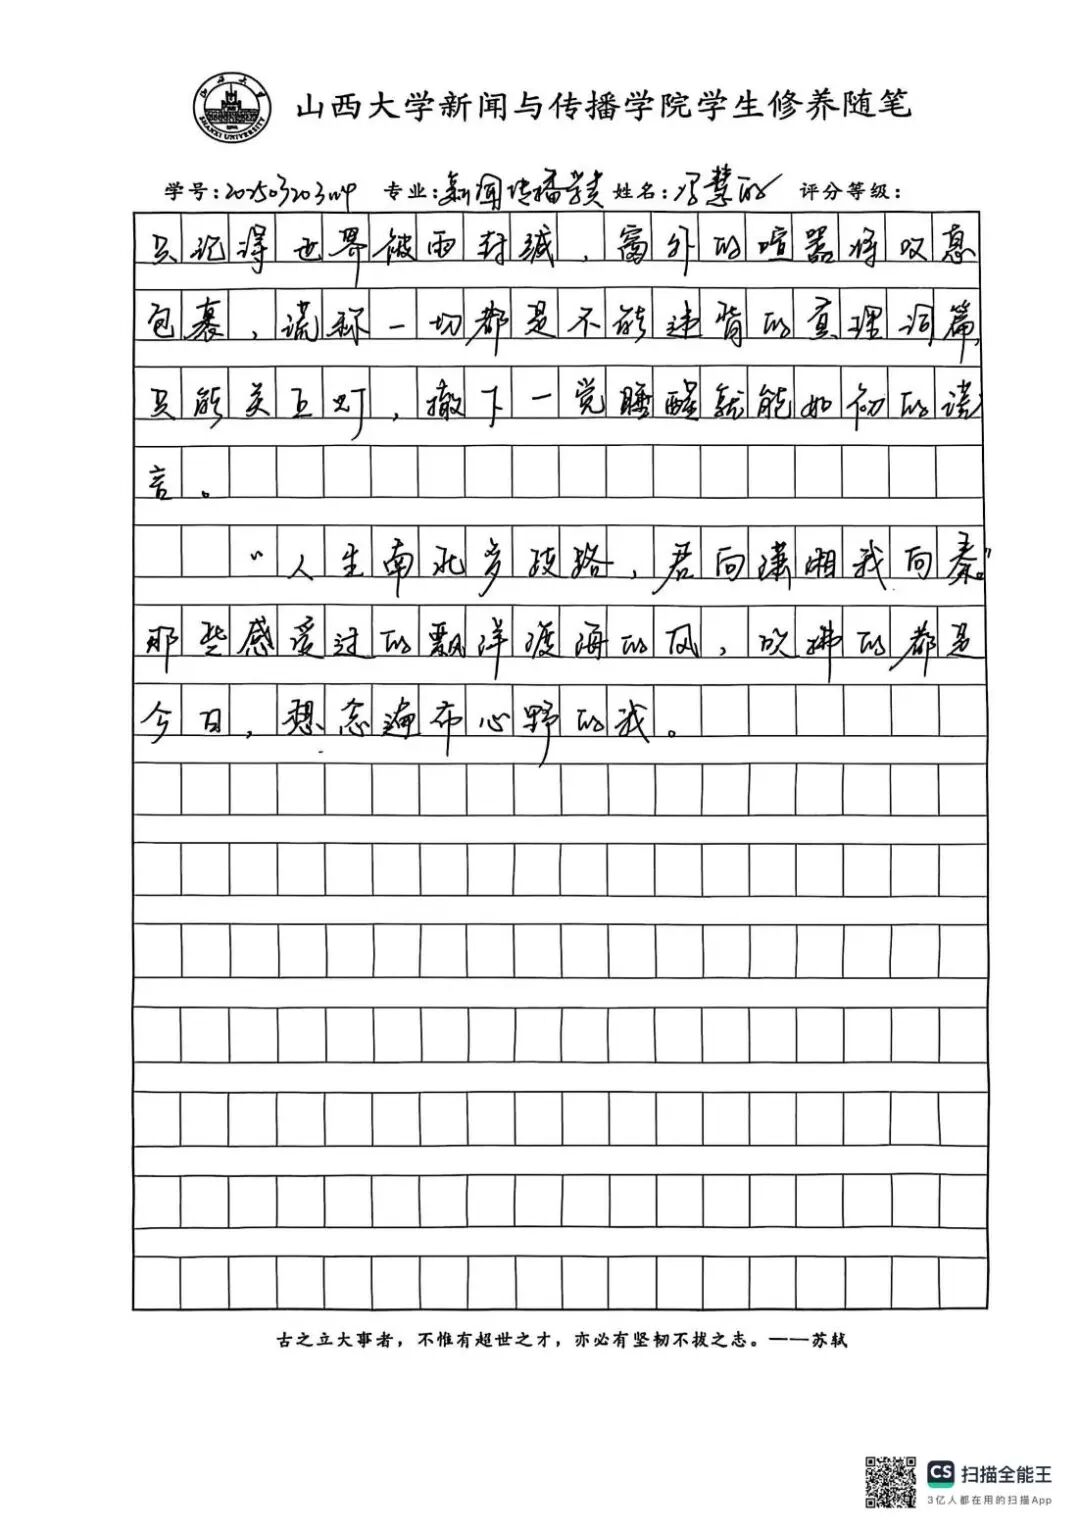 山西大学
SHANXI UNIVERSITY
山西大学新闻与传播学院学生修养随笔
学号: 专业:新闻传播学类 姓名:冯慧 评分等级:
只记得世界被雨封缄，窗外的喧嚣将叹息
包裹，谎称一切都是不能违背的真理词篇，
只能关互灯，撒下一觉睡醒就能如初的谎
言。
“人生南北多歧路，君向潇湘我向秦。”
那些感受过的飘洋渡海的风，吹拂的都是
今日，想念遍布心野的我。
古之立大事者，不惟有超世之才，亦必有坚韧不拔之志。——苏轼
CS 扫描全能王
3亿人都在用的扫描App